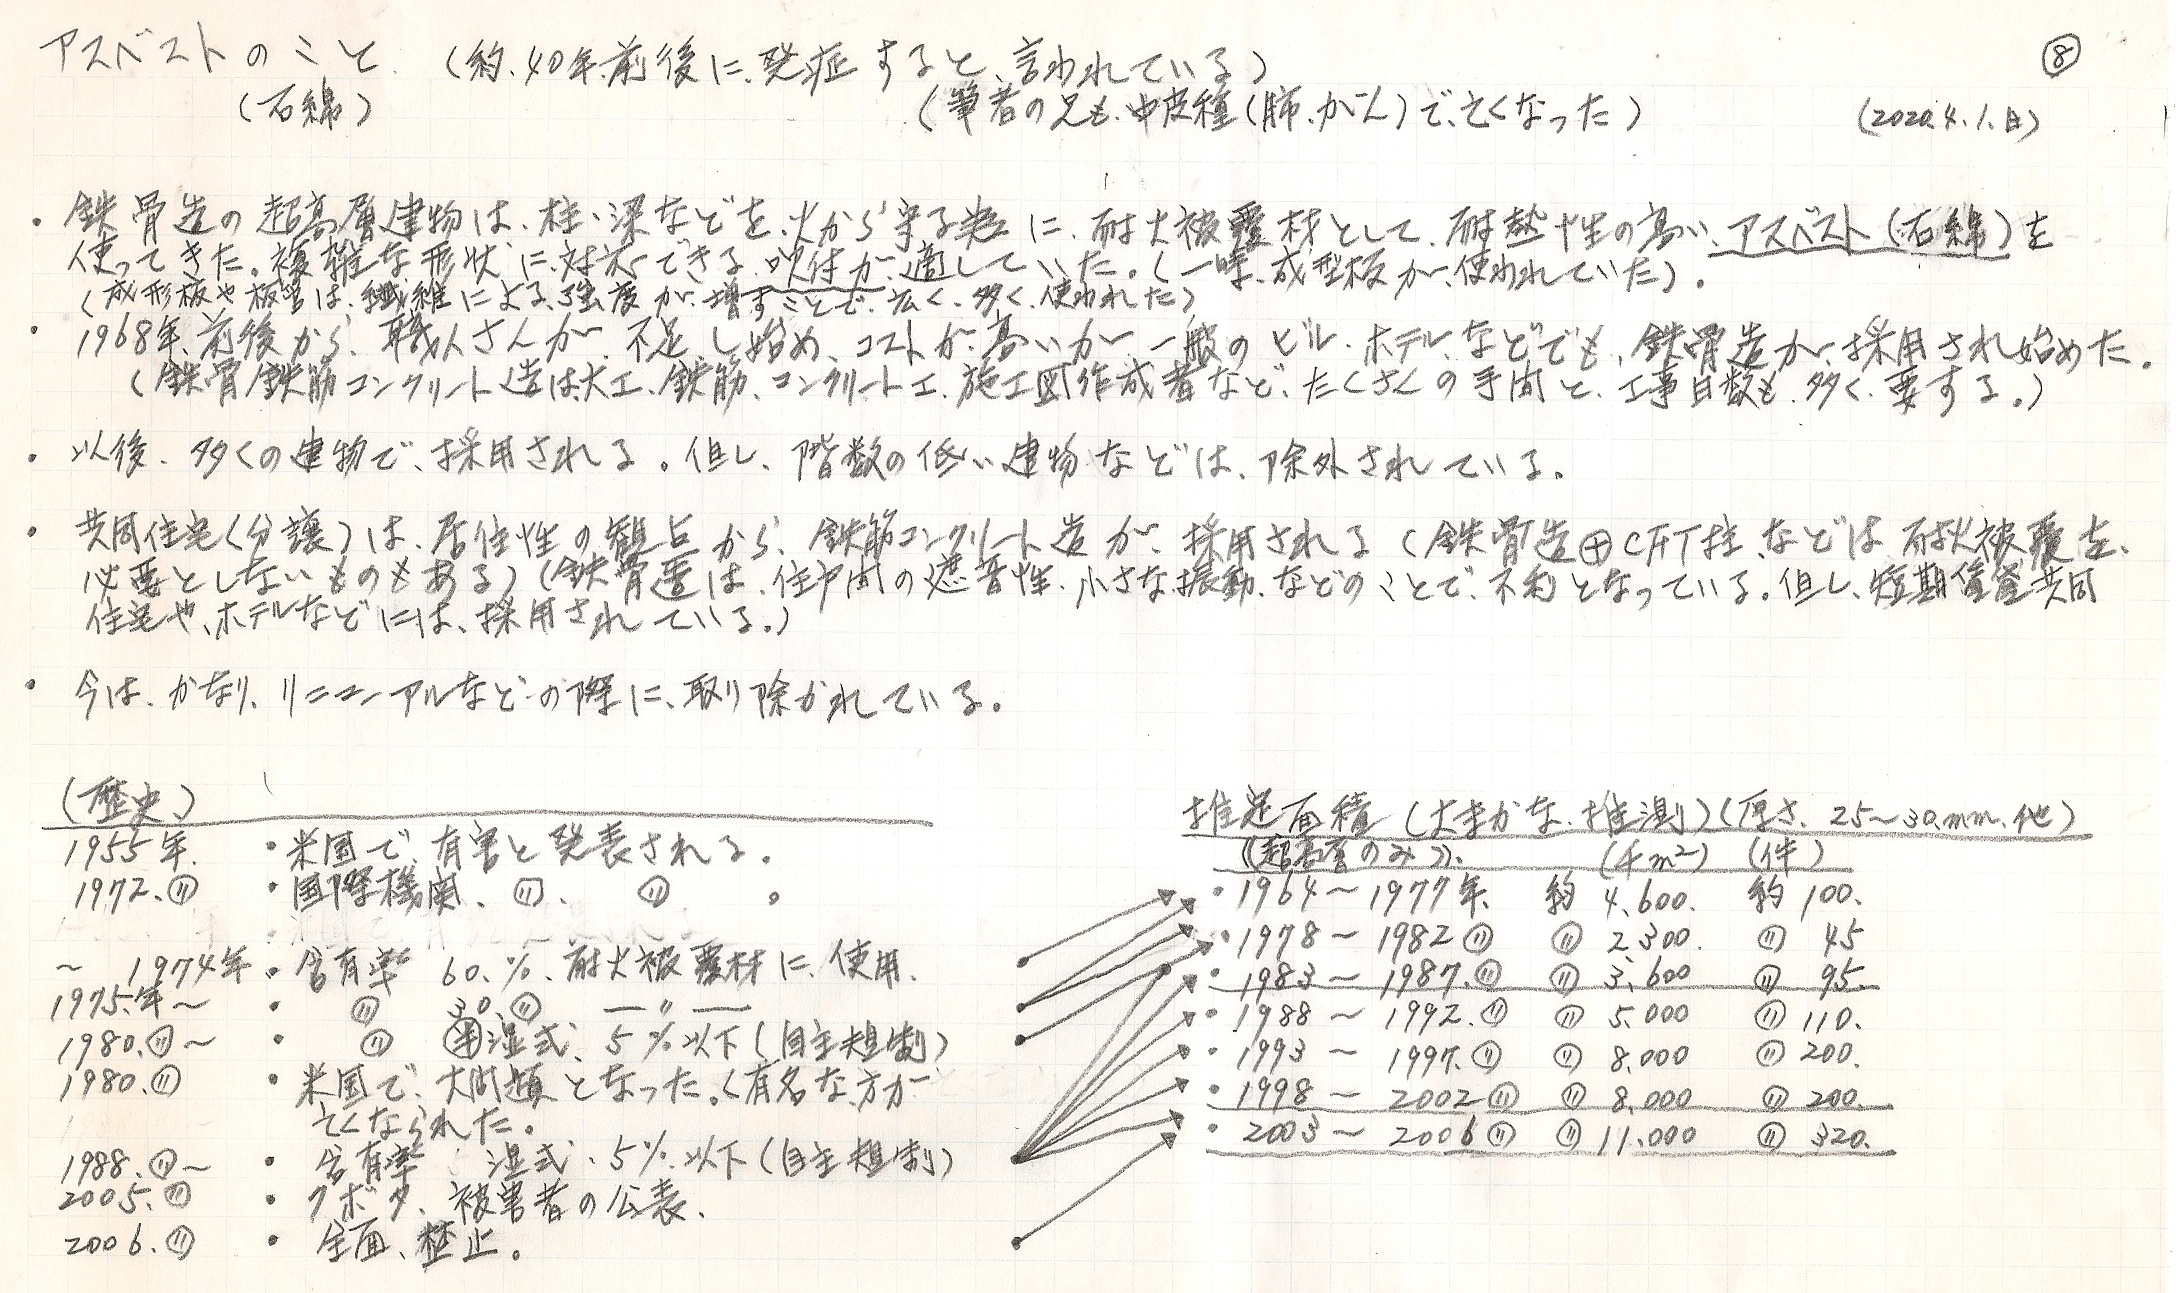 アスベストのこと (約、40年前後に、発症すると、言われている) ⑧
(石綿) (筆者の兄も、中皮種(肺、がん)で、亡くなった) (2020.4.1.日)
・鉄骨造の超高層建物は、柱、梁などを、火から守る為に、耐火被覆材として、耐熱性の高い、アスベスト(石綿)を
使ってきた。複雑な形状に、対応できる、吹付が、適していた。(一時、成型板が、使われていた)。
(成形板や板等は、繊維による、強度が、増すことで、広く、多く、使われた)
・1968年、前後から、職人さんが、不足し始め、コストが、高いが、一般のビル、ホテル、などでも、鉄骨造が、採用され始めた。
(鉄骨鉄筋コンクリート造は、大工、鉄筋、コンクリート工、施工図作成者など、たくさんの手間と、工事日数も、多く、要する。)
・以後、多くの建物で、採用される。但し、階数の低い建物などは、除外されている。
・共同住宅(分譲)は、居住性の観点から、鉄筋コンクリート造が、採用される(鉄骨造⊕CFT柱、などは耐火被覆を、
必要としないものもある)(鉄骨造は、住戸間の遮音性、小さな振動、などのことで、不利となっている。但し、短期賃貸共同
住宅や、ホテルなどには、採用されている。)
・今は、かなり、リニューアルなどの際に、取り除かれている。
(歴史)
1955年. ・米国で、有害と発表される。
1972.〃 ・国際機関、〃、〃。
～ 1974年・含有率 60.%、耐火被覆材に、使用.
1975.年～ ・ 〃 30.〃 ―〃―
1980.〃～ ・ 〃 半湿式、5%以下(自主規制)
1980.〃 ・米国で、大問題となった。(有名な方が
亡くなられた。
1988.〃～ ・含有率 湿式、5%以下(自主規制)
2005.〃 ・クボタ、被害者の公表.
2006.〃 ・全面、禁止。
推定面積(大まかな、推測)(厚さ、25～30.mm、他)
((超高層のみ)). (千m²) (件)
・1964～1977年. 約 4.600. 約 100.
・1978～1982〃 〃 2.300. 〃 45
・1983～1987.〃 〃 3.600 〃 95.
・1988～1992.〃 〃 5.000 〃 110.
・1993～1997.〃 〃 8.000 〃 200.
・1998～2002〃 〃 8.000 〃 200.
・2003～2006〃 〃 11.000 〃 320.